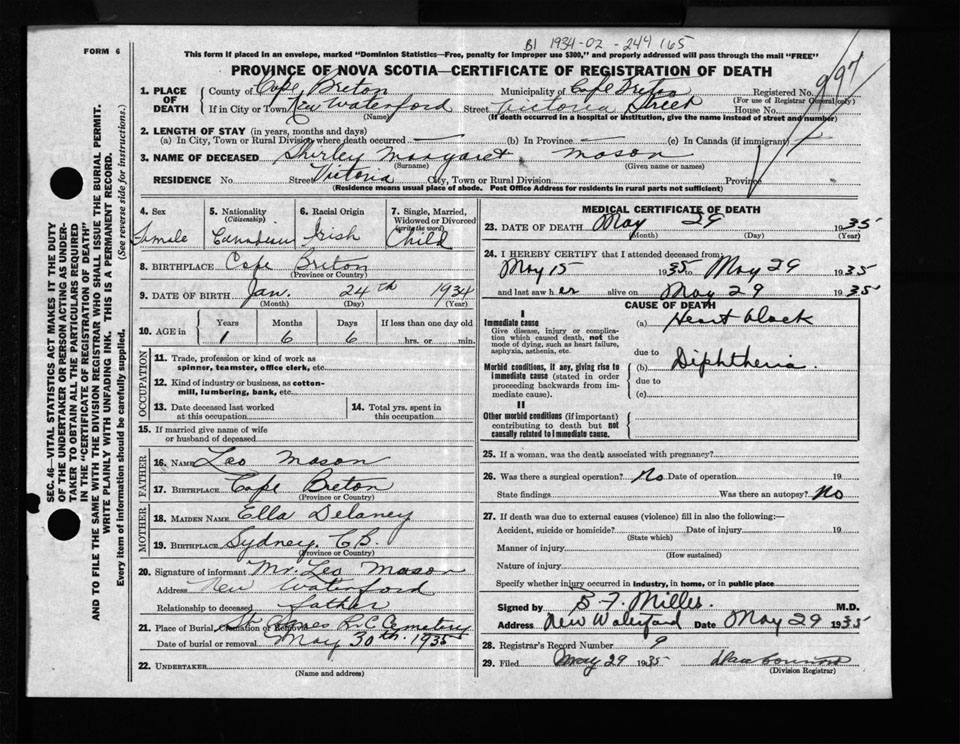 B1 1934-02-244165
FORM 6
This form if placed in an envelope, marked "Dominion Statistics—Free, penalty for improper use $300," and properly addressed will pass through the mail "FREE"
PROVINCE OF NOVA SCOTIA—CERTIFICATE OF REGISTRATION OF DEATH
SEC. 46—VITAL STATISTICS ACT MAKES IT THE DUTY
OF THE UNDERTAKER OR PERSON ACTING AS UNDER-
TAKER TO OBTAIN ALL THE PARTICULARS REQUIRED
IN THE "CERTIFICATE OF REGISTRATION OF DEATH"
AND TO FILE THE SAME WITH THE DIVISION REGISTRAR WHO SHALL ISSUE THE BURIAL PERMIT.
WRITE PLAINLY WITH UNFADING INK. THIS IS A PERMANENT RECORD.
Every item of information should be carefully supplied. (See reverse side for instructions.)
1. PLACE OF DEATH
County of Cape Breton Municipality of Cape Breton Registered No. 997
(For use of Registrar General only)
If in City or Town New Waterford Street Victoria Street House No.
(Name) (If death occurred in a hospital or institution, give the name instead of street and number)
2. LENGTH OF STAY (in years, months and days)
(a) In City, Town or Rural Division where death occurred (b) In Province (c) In Canada (if immigrant)
3. NAME OF DECEASED Shirley Margaret Mason
(Surname) (Given name or names)
RESIDENCE No. Street Victoria City, Town or Rural Division Province
(Residence means usual place of abode. Post Office Address for residents in rural parts not sufficient)
4. Sex Female
5. Nationality (Citizenship) Canadian
6. Racial Origin Irish
7. Single, Married, Widowed or Divorced (write the word) Child
8. BIRTHPLACE Cape Breton
(Province or Country)
9. DATE OF BIRTH Jan. 24th 1934
(Month) (Day) (Year)
10. AGE in Years Months Days If less than one day old
1 6 6 hrs. or min.
OCCUPATION
11. Trade, profession or kind of work as spinner, teamster, office clerk, etc.
12. Kind of industry or business, as cotton-mill, lumbering, bank, etc.
13. Date deceased last worked at this occupation
14. Total yrs. spent in this occupation
15. If married give name of wife or husband of deceased
FATHER
16. NAME Leo Mason
17. BIRTHPLACE Cape Breton
(Province or Country)
MOTHER
18. MAIDEN NAME Ella Delaney
19. BIRTHPLACE Sydney, C.B.
(Province or Country)
20. Signature of informant Mr. Leo Mason
Address New Waterford
Relationship to deceased father
21. Place of Burial, Cremation or Removal St. Agnes R.C. Cemetery
Date of burial or removal May 30th. 1935
22. UNDERTAKER
(Name and address)
MEDICAL CERTIFICATE OF DEATH
23. DATE OF DEATH May 29 1935
(Month) (Day) (Year)
24. I HEREBY CERTIFY that I attended deceased from:
May 15 1935 to May 29 1935
and last saw her alive on May 29 1935
CAUSE OF DEATH
I
Immediate cause (a) Heart block
Give disease, injury or complication which caused death, not the mode of dying, such as heart failure, asphyxia, asthenia, etc.
due to
Morbid conditions, if any, giving rise to immediate cause (stated in order proceeding backwards from immediate cause).
(b) Diphtheria
due to
(c)
II
Other morbid conditions (if important) contributing to death but not causally related to immediate cause.
25. If a woman, was the death associated with pregnancy?
26. Was there a surgical operation? No Date of operation 19
State findings Was there an autopsy? No
27. If death was due to external causes (violence) fill in also the following:—
Accident, suicide or homicide? Date of injury 19
(State which)
Manner of injury
(How sustained)
Nature of injury
Specify whether injury occurred in industry, in home, or in public place
Signed by B F Miller M.D.
Address New Waterford Date May 29 1935
28. Registrar's Record Number 9
29. Filed May 29 1935
(Division Registrar)